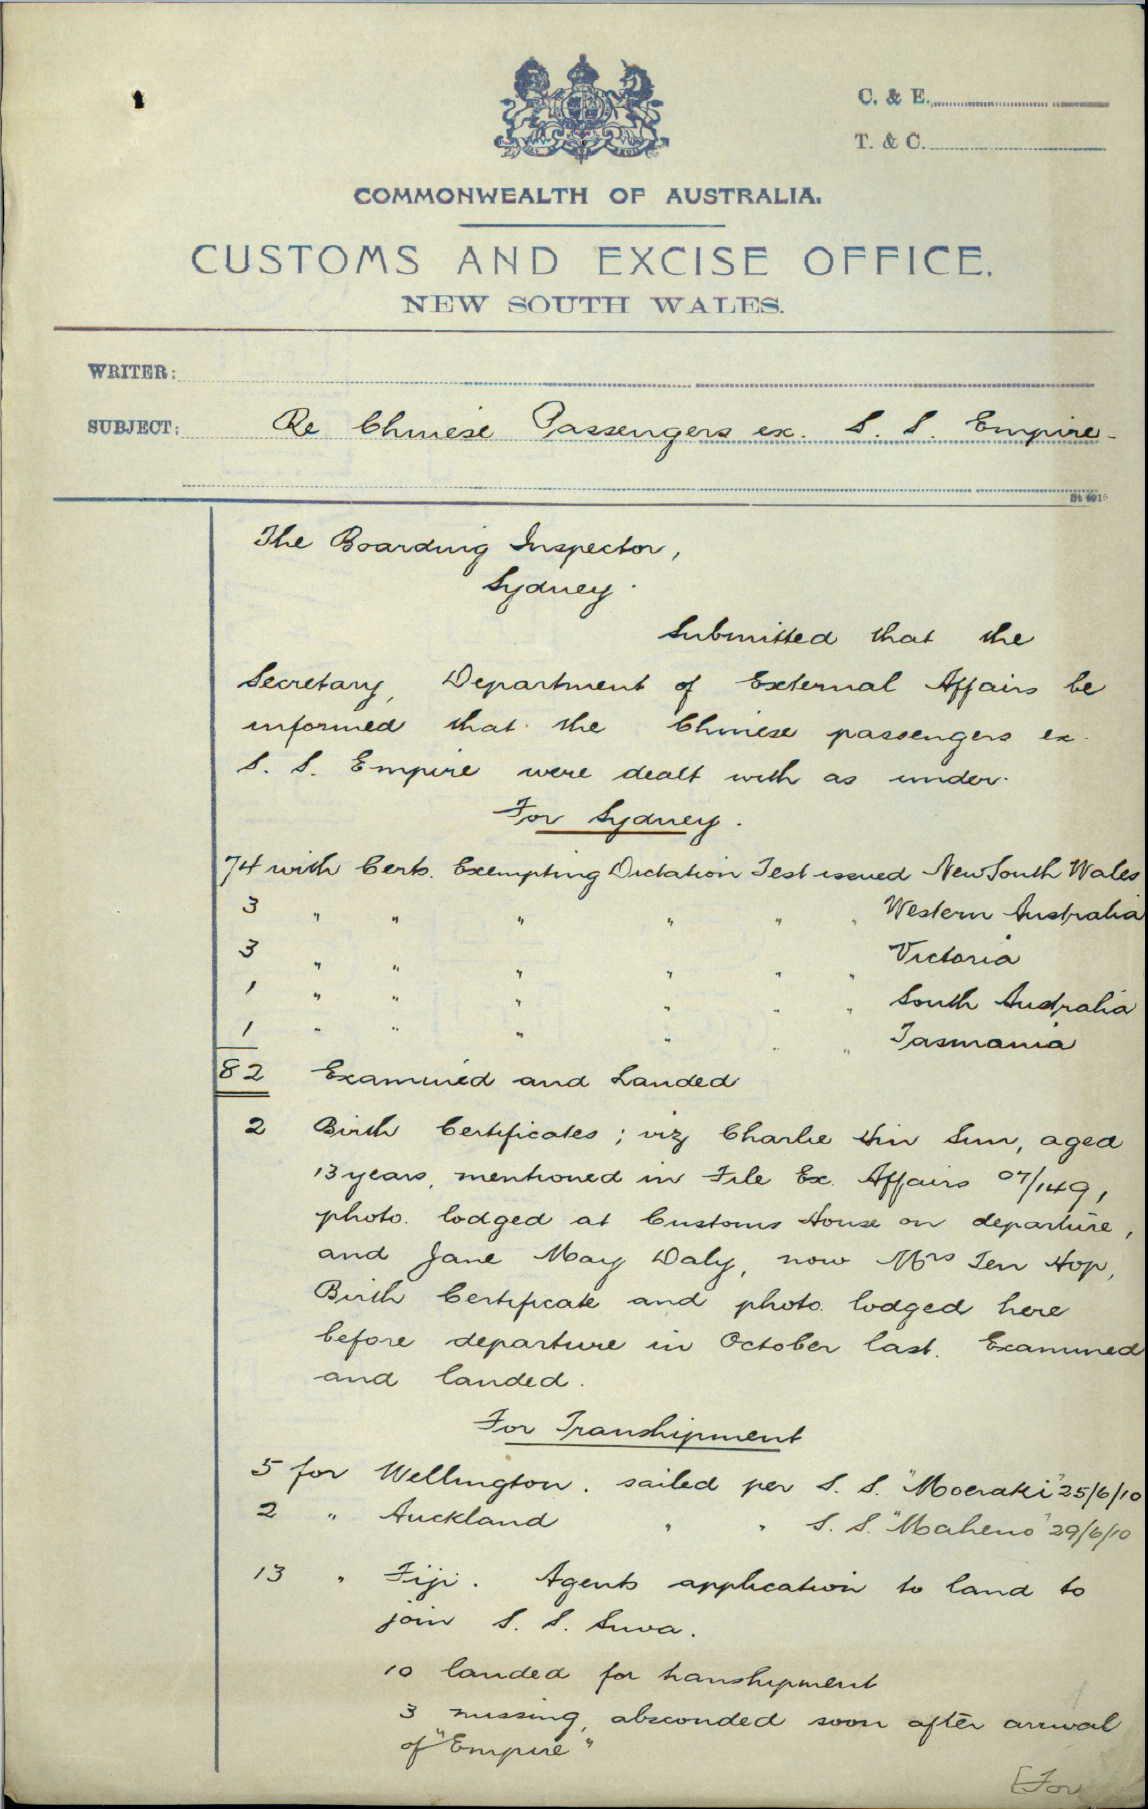 C. & E.
T. & C.
COMMONWEALTH OF AUSTRALIA.
CUSTOMS AND EXCISE OFFICE.
NEW SOUTH WALES.
WRITER:
SUBJECT: Re Chinese Passengers ex. S. S. Empire -
The Boarding Inspector,
Sydney.
Submitted that the
Secretary, Department of External Affairs be
informed that the Chinese passengers ex.
S. S. Empire were dealt with as under.
For Sydney.
74 with Certs. Exempting Dictation Test issued New South Wales
3 " " " " " " Western Australia
3 " " " " " " Victoria
1 " " " " " " South Australia
1 " " " " " " Tasmania
82 Examined and Landed
2 Birth Certificates; viz Charlie Hin Sun, aged
13 years, mentioned in File Ex. Affairs 07/149,
photo. lodged at Customs House on departure,
and Jane May Daly, now Mrs Ten Hop,
Birth Certificate and photo. lodged here
before departure in October last. Examined
and landed.
For Transhipment
5 for Wellington. sailed per S. S. "Moeraki" 25/6/10
2 " Auckland " " S. S. "Maheno" 29/6/10
13 " Fiji. Agents application to land to
join S. S. Suva.
10 landed for transhipment
3 missing, absconded soon after arrival
of "Empire"
[For